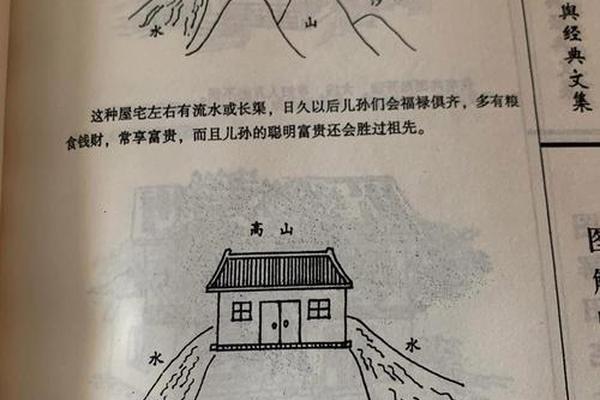 水
山
这种屋宅左右有流水或长渠，日久以后儿孙们会福禄俱齐，多有粮
食钱财，常享富贵，而且儿孙的聪明富贵还会胜过祖先。
高山
水
水
舆经典文集
图解